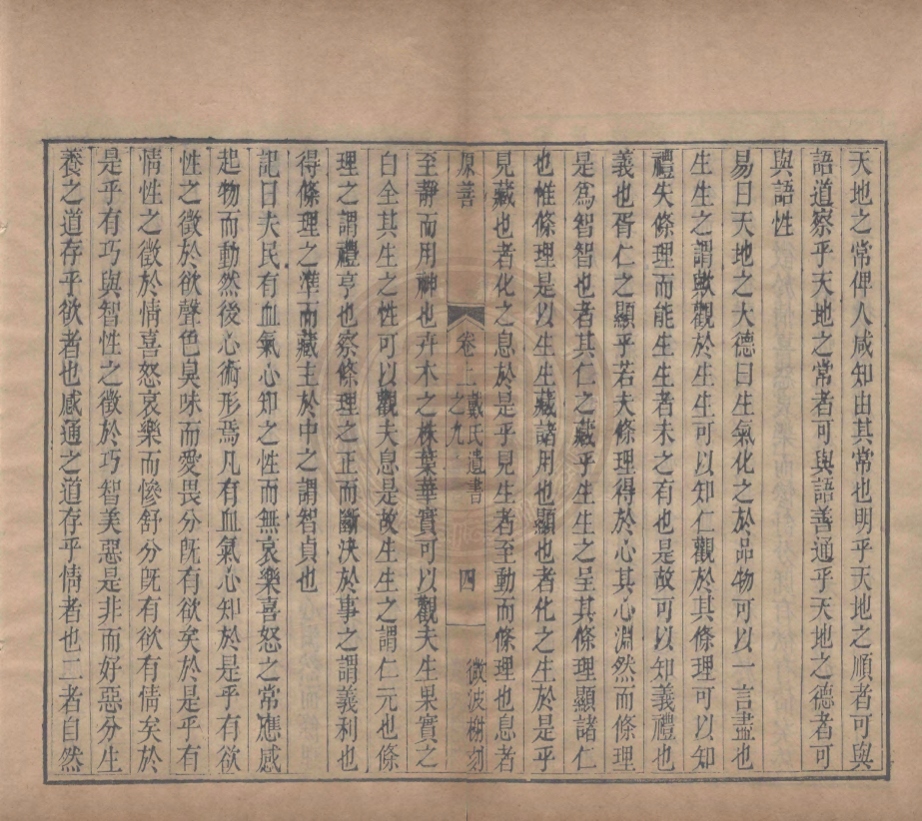 天地之常俾人咸知由其常也明乎天地之順者可與
語道察乎天地之常者可與語善通乎天地之德者可
與語性
易曰天地之大德曰生氣化之於品物可以一言盡也
生生之謂歟觀於生生可以知仁觀於其條理可以知
禮失條理而能生生者未之有也是故可以知義禮也
義也胥仁之顯乎若夫條理得於心其心淵然而條理
是爲智智也者其仁之藏乎生生之呈其條理顯諸仁
也惟條理是以生生藏諸用也顯也者化之生於是乎
見藏也者化之息於是乎見生者至動而條理也息者
原善
卷二
戴氏遺書
之九
四
微波榭刻
至靜而用神也卉木之株葉華實可以觀夫生果實之
白全其生之性可以觀夫息是故生生之謂仁元也條
理之謂禮亨也察條理之正而斷決於事之謂義利也
得條理之準而藏主於中之謂智貞也
記曰夫民有血氣心知之性而無哀樂喜怒之常應感
起物而動然後心術形焉凡有血氣心知於是乎有欲
性之徵於欲聲色臭味而愛畏分旣有欲矣於是乎有
情性之徵於情喜怒哀樂而慘舒分旣有欲有情矣於
是乎有巧與智性之徵於巧智美惡是非而好惡分生
養之道存乎欲者也感通之道存乎情者也二者自然